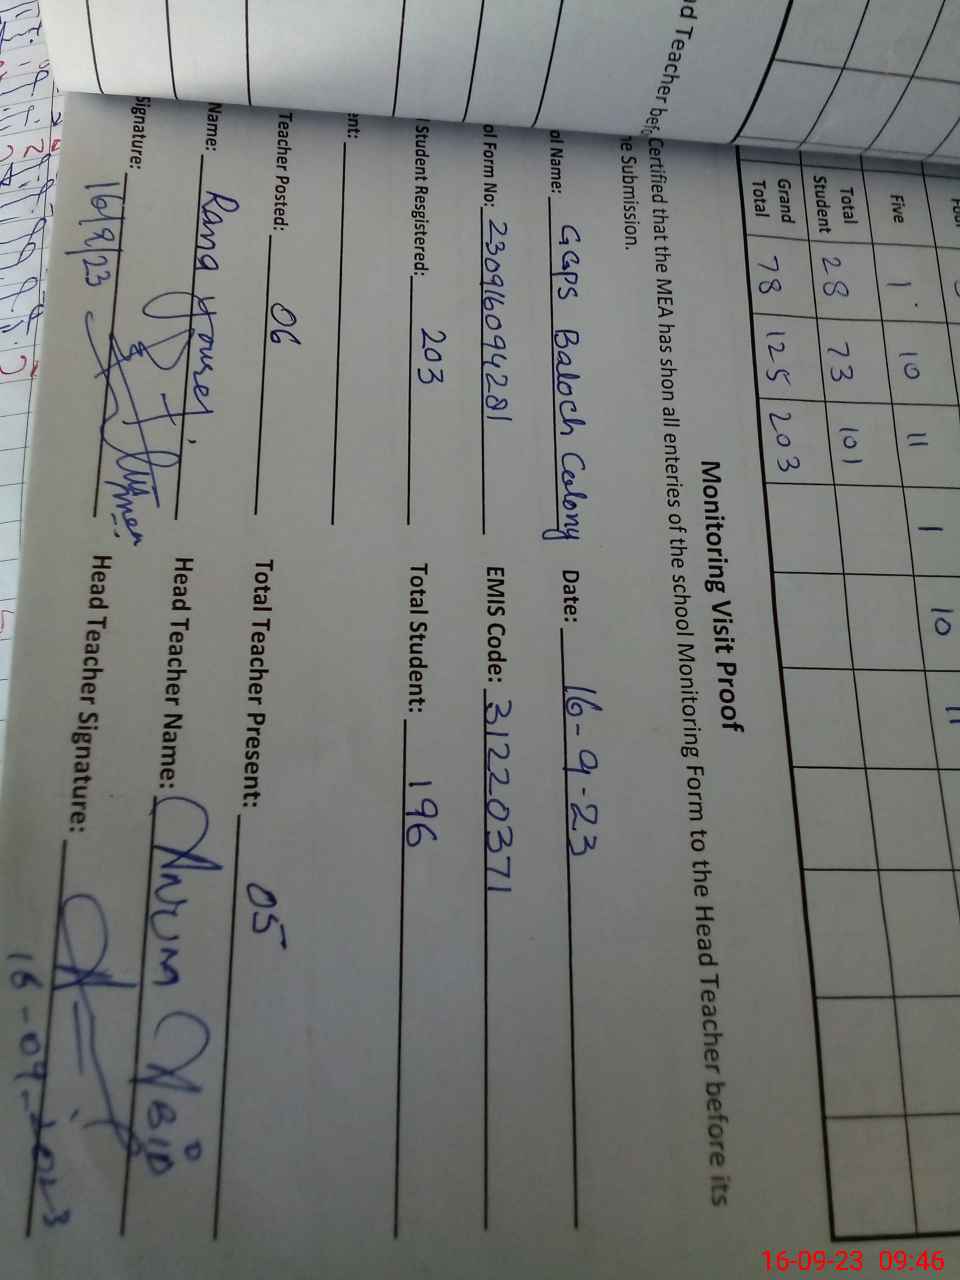 Five 1 10 11 1 10 11
Total Student 28 73 101
Grand Total 78 125 203
Monitoring Visit Proof
Certified that the MEA has shon all enteries of the school Monitoring Form to the Head Teacher before its
Submission.
ol Name: GGPS Baloch Colony Date: 16-9-23
ol Form No: 23091609428 EMIS Code: 31220371
Student Resgistered: 203 Total Student: 196
nt:
Teacher Posted: 06 Total Teacher Present: 05
Name: Rana Head Teacher Name: Anum Abid
Signature: 16/9/23 Head Teacher Signature:
16-09-2023
d Teacher bef
16-09-23 09:46